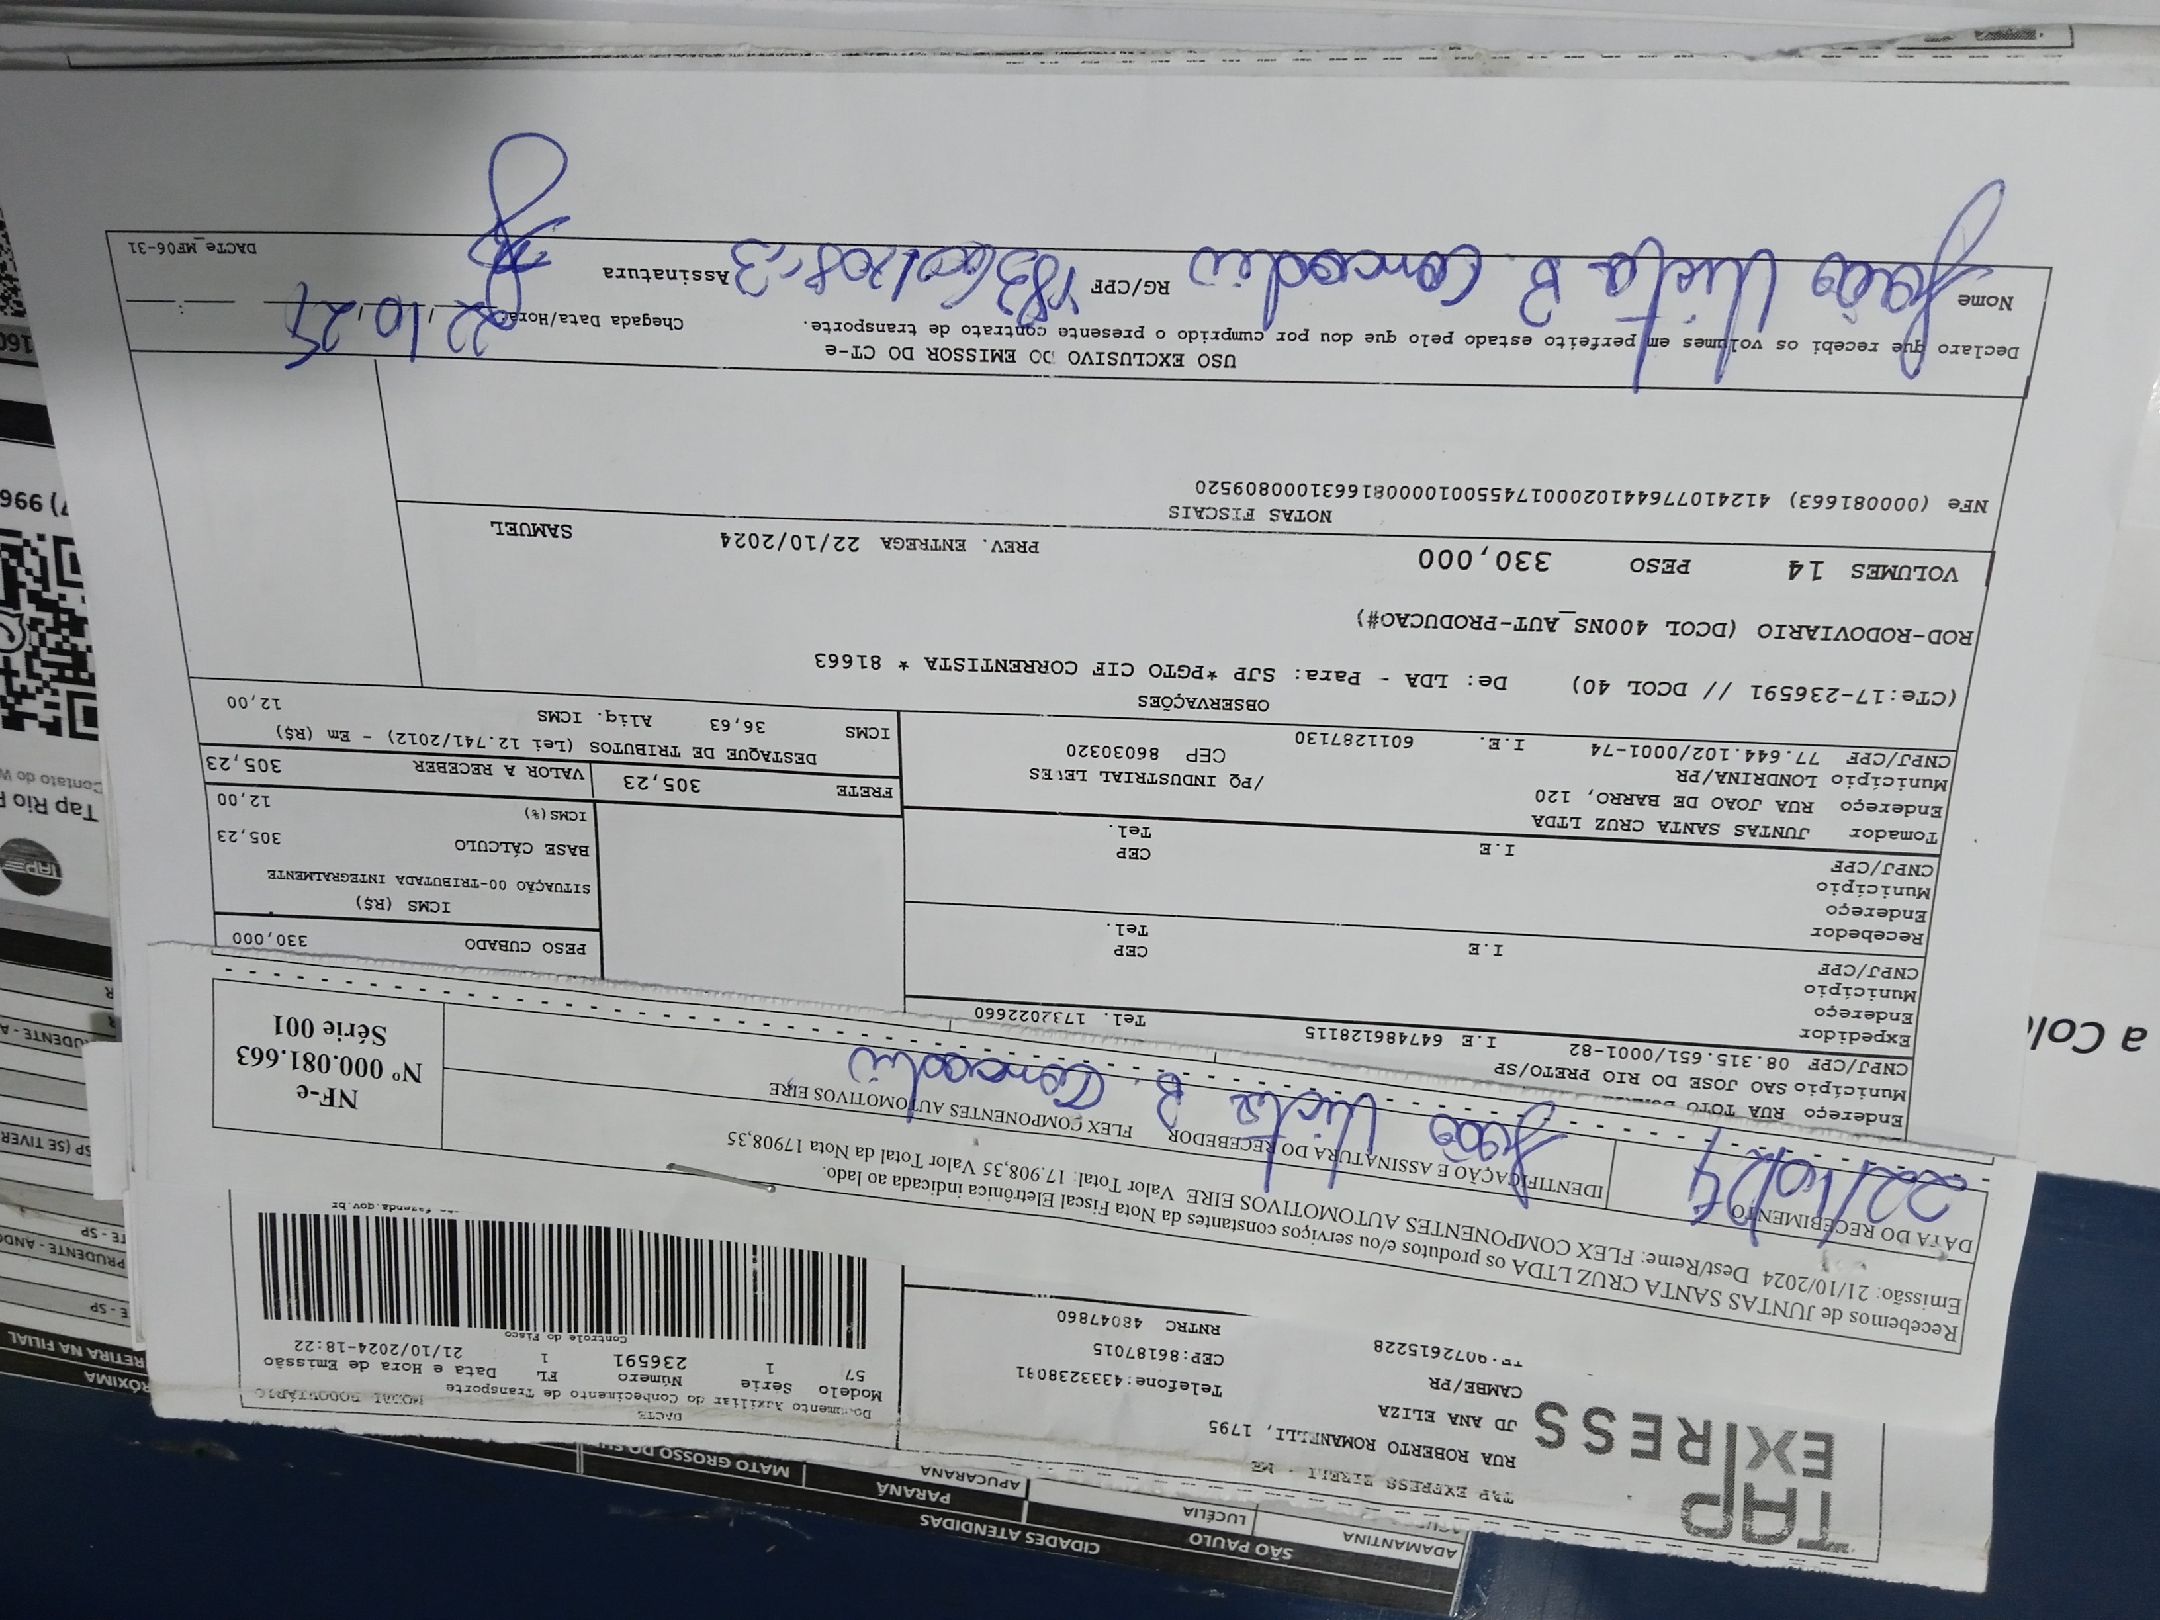 CIDADES ATENDIDAS
SÃO PAULO
PARANÁ
MATO GROSSO DO SUL
ADAMANTINA
LUCÉLIA
APUCARANA
RÓXIMA
RETIRA NA FILIAL
TAP
EXPRESS
TAP EXPRESS EIRELI - ME
RUA ROBERTO ROMANELLI, 1795
JD ANA ELIZA
CAMBE/PR
9072615228
Telefone:4333238081
CEP:86187015
RNTRC 48047860
DACTE
Documento Auxiliar do Conhecimento de Transporte
MODAL RODOVIÁRIO
Modelo Série Número FL Data e Hora de Emissão
57 1 236591 1 21/10/2024-18:22
Controle do Fisco
fazenda.gov.br
Recebemos de JUNTAS SANTA CRUZ LTDA os produtos e/ou serviços constantes da Nota Fiscal Eletrônica indicada ao lado.
Emissão: 21/10/2024 Dest/Reme: FLEX COMPONENTES AUTOMOTIVOS EIRE Valor Total: 17.908,35 Valor Total da Nota 17908,35
DATA DO RECEBIMENTO
IDENTIFICAÇÃO E ASSINATURA DO RECEBEDOR
FLEX COMPONENTES AUTOMOTIVOS EIRE
22/10/24
João Victor B.
NF-e
Nº 000.081.663
Série 001
Endereço RUA TOTO
Município SAO JOSE DO RIO PRETO/SP
CNPJ/CPF 08.315.651/0001-82 I.E 647486128115 Tel. 1732022660
Expedidor
Endereço
Município
CNPJ/CPF I.E CEP
Tel.
Recebedor
Endereço
Município
CNPJ/CPF I.E CEP
Tel.
Tomador JUNTAS SANTA CRUZ LTDA
Endereço RUA JOAO DE BARRO, 120 /PQ INDUSTRIAL LEVES
Município LONDRINA/PR CEP 86030320
CNPJ/CPF 77.644.102/0001-74 I.E. 6011287130
PESO CUBADO 330,000
ICMS (R$)
SITUAÇÃO 00-TRIBUTADA INTEGRALMENTE
BASE CÁLCULO 305,23
ICMS(%) 12,00
FRETE 305,23 VALOR A RECEBER 305,23
DESTAQUE DE TRIBUTOS (Lei 12.741/2012) - Em (R$)
ICMS 36,63 Aliq. ICMS 12,00
OBSERVAÇÕES
(CTe:17-236591 // DCOL 40) De: LDA - Para: SJP *PGTO CIF CORRENTISTA * 81663
ROD-RODOVIARIO (DCOL 400NS_AUT-PRODUCAO#)
VOLUMES 14 PESO 330,000 PREV. ENTREGA 22/10/2024 SAMUEL
NOTAS FISCAIS
NFe (000081663) 41241077644102000174550010000816631000809520
USO EXCLUSIVO DO EMISSOR DO CT-e
Declaro que recebi os volumes em perfeito estado pelo que dou por cumprido o presente contrato de transporte.
Chegada Data/Hora: 22,10,24
Nome João Victor B. RG/CPF Assinatura
DACTe_MF06-31
Tap Rio
Contato do W